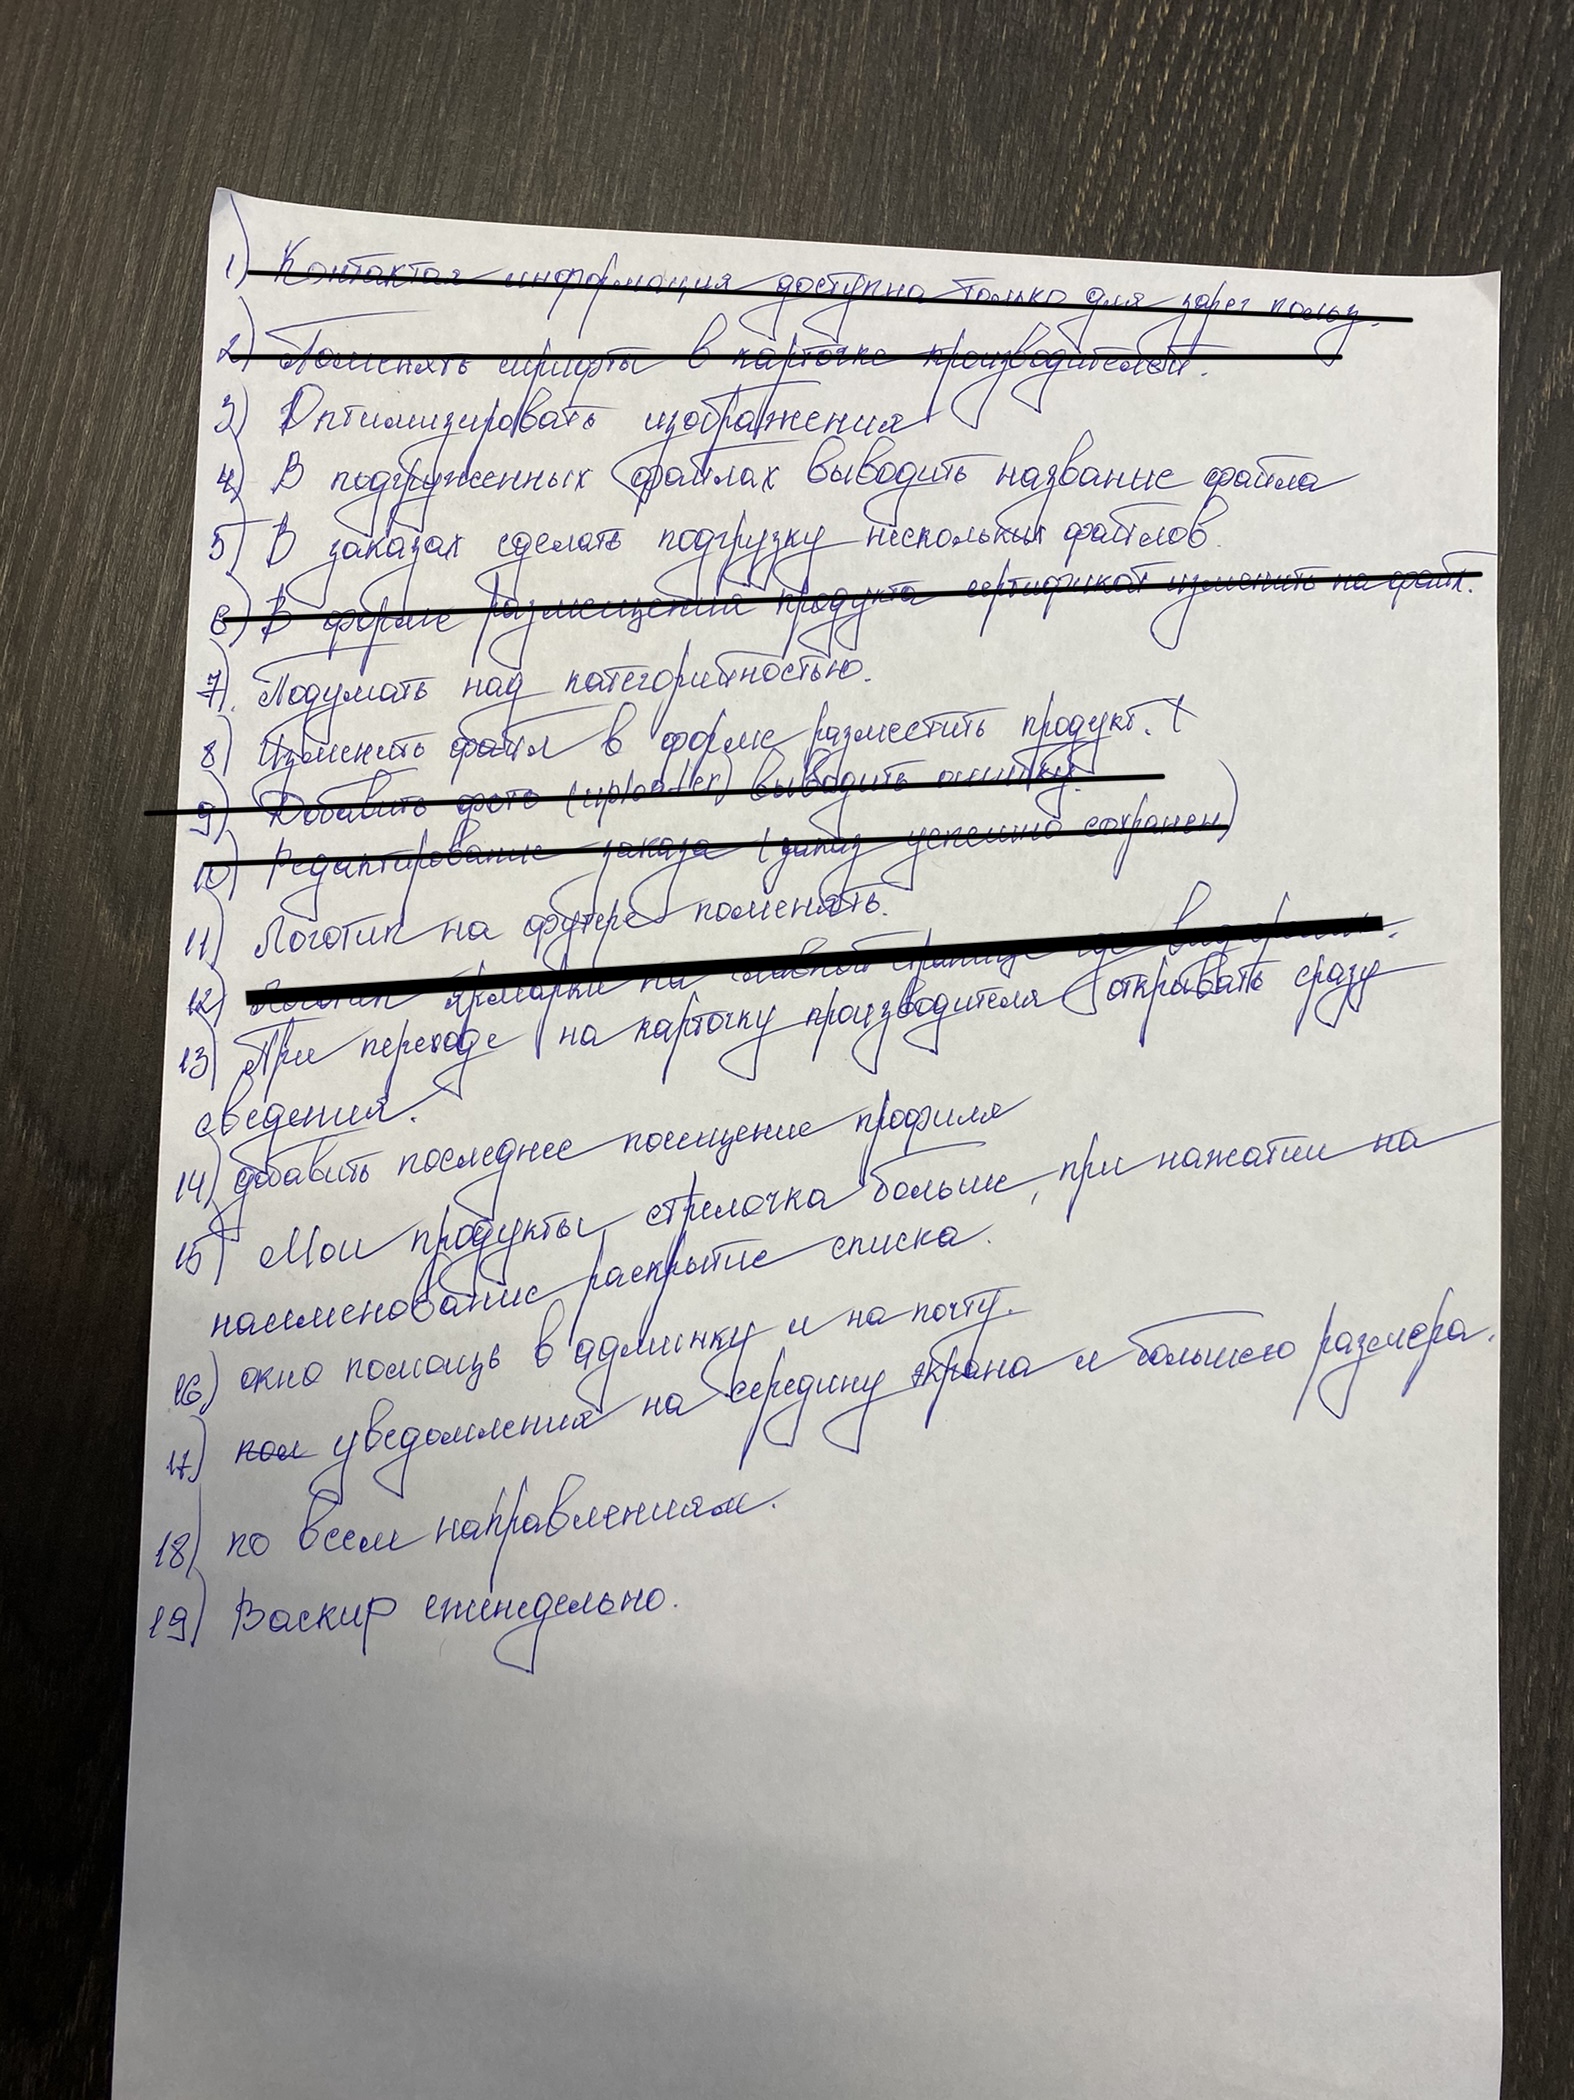 1) Контактая информация доступна только для зарег польз.
2) Поменять шрифты в карточке производителей.
3) Оптимизировать изображения
4) В подгруженных файлах выводить название файла
5) В заказах сделать подгрузку нескольких файлов.
6) В форме размещений продукта сертификат изменить на файл.
7) Подумать над категорийностью.
8) Изменить файл в форме разместить продукт. +
9) Добавить фото (uploader) выводить ошибку.
10) Редактирование заказа (заказ успешно сохранен)
11) Логотип на футере поменять.
12) Логотип ярмарки на главной странице где
13) При переходе на карточку производителя открывать сразу
сведения.
14) добавить последнее посещение профиля
15) Мои продукты, стрелочка больше, при нажатии на
наименование раскрытие списка.
16) окно помощь в админку и на почту.
17) уведомления на середину экрана и большего размера.
18) по всем направлениям.
19) Васкир еженедельно.